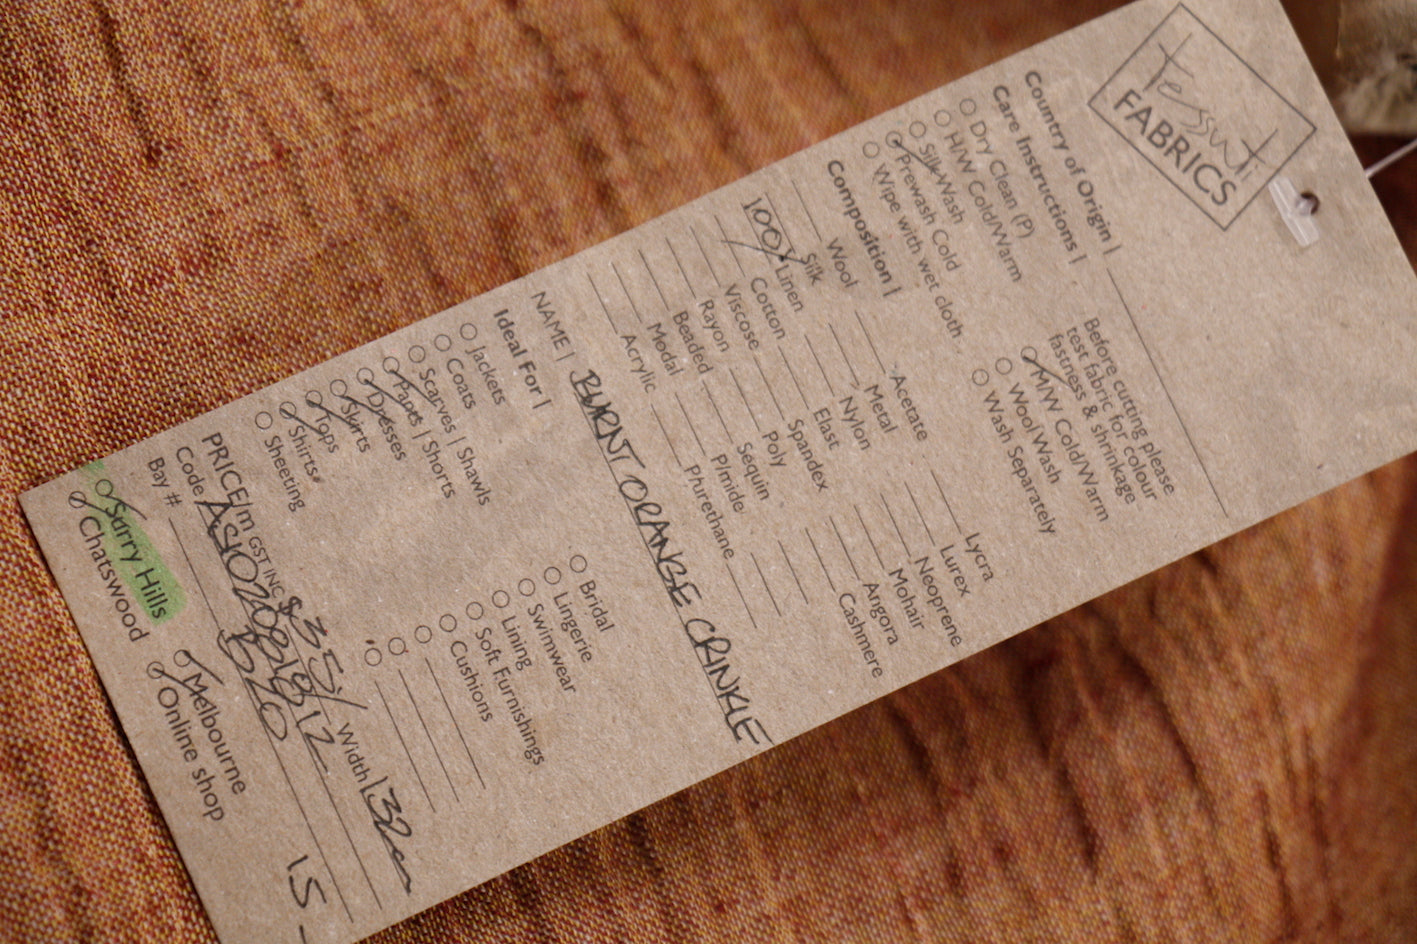 tessuti
FABRICS
Country of Origin |
Care Instructions |
Dry Clean (P)
H/W Cold/Warm
Silk Wash
Prewash Cold
Wipe with wet cloth
Before cutting please
test fabric for colour
fastness & shrinkage
M/W Cold/Warm
Wool Wash
Wash Separately
Composition |
Wool
Silk
100% Linen
Cotton
Viscose
Rayon
Beaded
Modal
Acrylic
Acetate
Metal
Nylon
Elast
Spandex
Poly
Sequin
P/mide
P/urethane
Lycra
Lurex
Neoprene
Mohair
Angora
Cashmere
NAME | BURNT ORANGE CRINKLE
Ideal For |
Jackets
Coats
Scarves | Shawls
Pants | Shorts
Dresses
Skirts
Tops
Shirts
Sheeting
Bridal
Lingerie
Swimwear
Lining
Soft Furnishings
Cushions
PRICE/m GST INC $35/ Width 132cm
Code
Bay #
1.5
Surry Hills
Chatswood
Melbourne
Online shop